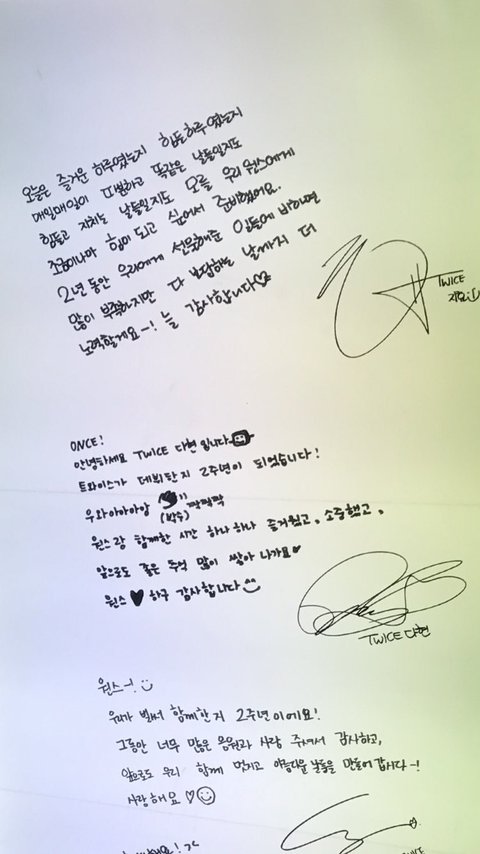 오늘은 즐거운 하루였는지 힘든하루였는지
매일매일이 따분하고 똑같은 날들일지도
힘들고 지치는 날들일지도 모를 우리 원스에게
조금이나마 힘이 되고 싶어서 준비했어요.
2년동안 우리에게 선물해준 일들에 비하면
많이 부족하지만 다 보답하는 날까지 더
노력할게요-! 늘 감사합니다♡
TWICE
지효:)
ONCE!
안녕하세요 TWICE 다현입니다
트와이스가 데뷔한지 2주년이 되었습니다!
우와아아아앙 짝짝짝
(박수)
원스랑 함께한 시간 하나하나 즐거웠고, 소중했고,
앞으로도 좋은 추억 많이 쌓아 나가요♥
원스♥하구 감사합니다
TWICE 다현
원스-! :)
우리가 벌써 함께한지 2주년이에요!
그동안 너무 많은 응원과 사랑 주셔서 감사하고,
앞으로도 우리 함께 멋지고 아름다운 날들을 만들어 갑시다-!
사랑해요♡☺